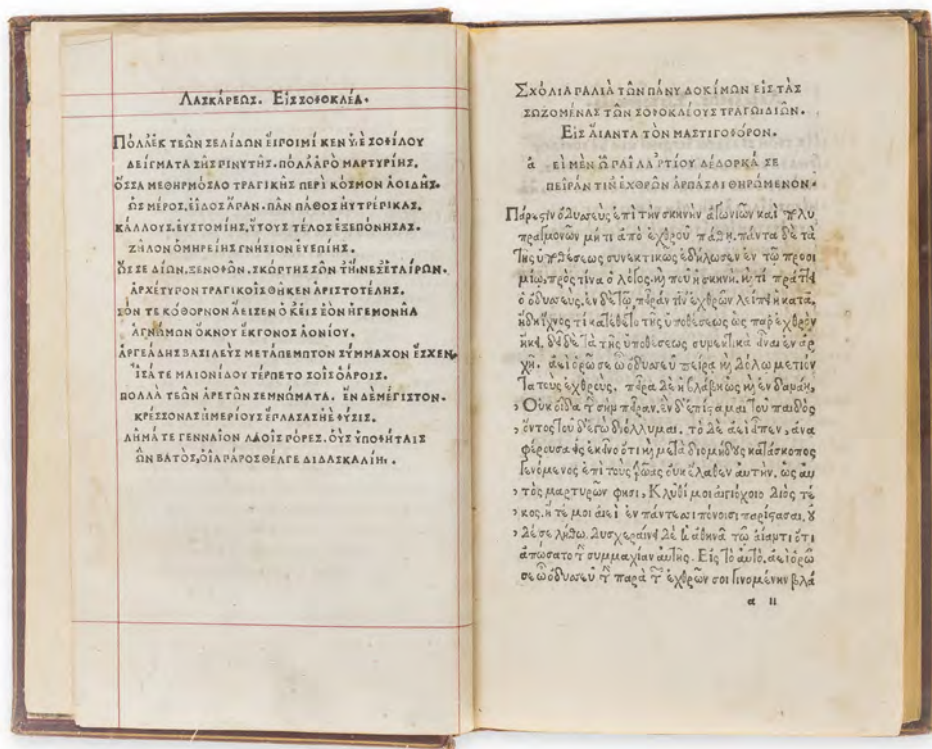 ΛΑΣΚΑΡΕΩΣ. ΕΙΣ ΣΟΦΟΚΛΕΑ.
ΠΟΛΛ ἘΚ ΤΕΩΝ ΣΕΛΙΔΩΝ
ΔΕΙΓΜΑΤΑ ΣΗΣ ΠΙΝΥΤΗΣ. ΠΟΛΛΑ ΡΟ ΜΑΡΤΥΡΙΗΣ.
ὍΣΣΑ ΜΕΘΗΡΜΟΣΑΟ ΤΡΑΓΙΚΗΣ ΠΕΡΙ ΚΟΣΜΟΝ ΑΟΙΔΗΣ.
ὩΣ ΜΕΡΟΣ, ΕΙΔΟΣ ΑΠΑΝ. ΠΑΝ ΠΑΘΟΣ
ΚΑΛΛΟΥΣ, ΕΥΣΤΟΜΙΗΣ, ΤΕΛΟΣ ΕΞΕΠΟΝΗΣΑΣ.
ΖΗΛΟΝ ΟΜΗΡΕΙΗΣ ΓΝΗΣΙΟΝ ΕΥΕΠΙΗΣ.
ΔΙΩΝ, ΞΕΝΟΦΩΝ,
ΑΡΧΕΤΥΠΟΝ ΤΡΑΓΙΚΟΙΣ ΘΗΚΕΝ ΑΡΙΣΤΟΤΕΛΗΣ.
ΣΟΝ ΤΕ ΚΟΘΟΡΝΟΝ ΑΕΙΣΕΝ Ὁ ΚΕΙΣ ΕΟΝ ἩΓΕΜΟΝΗΑ
ΑΓΝΩΜΩΝ ΟΚΝΟΥ ΕΚΓΟΝΟΣ ΑΟΝΙΟΥ.
ἈΡΓΕΑΔΗΣ ΒΑΣΙΛΕΥΣ ΜΕΤΑΠΕΜΠΤΟΝ ΣΥΜΜΑΧΟΝ ἜΣΧΕΝ.
ἸΣΑ ΤΕ ΜΑΙΟΝΙΔΟΥ ΤΕΡΠΕΤΟ ΣΟΙΣ ΟΑΡΟΙΣ.
ΠΟΛΛΑ ΤΕΩΝ ΑΡΕΤΩΝ ΣΕΜΝΩΜΑΤΑ. ΕΝ ΔΕ ΜΕΓΙΣΤΟΝ.
ΚΡΕΣΣΟΝΑΣ ΗΜΕΡΙΟΥΣ ἜΠΛΑΣΑ ΣΗ ΦΥΣΙΣ.
ΛΗΜΑ ΤΕ ΓΕΝΝΑΙΟΝ ΛΑΟΙΣ ΠΟΡΕΣ. ΟΥΣ ΥΠΟΦΗΤΑΙΣ
ὨΝ ΒΑΤΟΣ, ΟΙΑ ΠΑΡΟΣ ΘΕΛΓΕ ΔΙΔΑΣΚΑΛΙΗ.
ΣΧΟΛΙΑ ΠΑΛΙΑ ΤΩΝ ΠΑΝΥ ΔΟΚΙΜΩΝ ΕΙΣ ΤΑΣ
ΣΩΖΟΜΕΝΑΣ ΤΩΝ ΣΟΦΟΚΛΕΟΥΣ ΤΡΑΓΩΙΔΙΩΝ.
ΕΙΣ ΑΙΑΝΤΑ ΤΟΝ ΜΑΣΤΙΓΟΦΟΡΟΝ.
ἀ ΕΙ ΜΕΝ Ὠ ΠΑΙ ΛΑΡΤΙΟΥ ΔΕΔΟΡΚΑ ΣΕ
ΠΕΙΡΑΝ ΤΙΝ ΕΧΘΡΩΝ ΑΡΠΑΣΑΙ ΘΗΡΩΜΕΝΟΝ.
Πάρεστιν ὀδυσσεὺς ἐπὶ τὴν σκηνὴν ἀγωνιῶν καὶ πολυ
πραγμονῶν μή τι ἀπὸ ἐχθροῦ πάθῃ. πάντα δὲ τὰ
τῆς ὑποθέσεως συνεκτικῶς ἐδήλωσεν ἐν τῷ προοι
μίῳ. πρὸς τίνα ὁ λόγος. καὶ ποῦ ἡ σκηνή. καὶ τί πράττει
ὁ ὀδυσσεύς. ἐν δὲ τῷ πεῖραν τιν ἐχθρῶν λείπει ἡ κατά.
τῆς ὑποθέσεως ὡς παρ ἐχθρὸν
τῆς ὑποθέσεως εἶναι ἐν ἀρ
χῇ. ἀεὶ ὁρῶ σε ὦ ὀδυσσεῦ πείρᾳ καὶ δόλῳ μετιόν
τα τοὺς ἐχθρούς. πεῖρα δὲ ἡ βλάβη ὡς καὶ ἐν
, Οὐκ οἶδα τὴν σὴν πεῖραν. ἓν δ' ἐπίσταμαι τοῦ παιδὸς
, ὄντος τοῦδ' ἐγὼ διόλλυμαι. τὸ δὲ ἀεὶ εἶπεν, ἀνα
φέρουσα εἰς ἐκεῖνο ὅτι καὶ μετὰ διομήδους κατάσκοπος
γενόμενος ἐπὶ τοὺς θρᾷας οὐκ ἔλαθεν αὐτήν. ὡς αὐ
, τὸς μαρτυρῶν φησι, Κλῦθί μοι αἰγιόχοιο διὸς τέ
, κος. ἥ τέ μοι αἰεὶ ἐν πάντεσσι πόνοισι παρίστασαι. οὐ
, δέ σε λήθω. δυσχεραίνει δὲ ἡ ἀθηνᾶ τῷ αἴαντι ὅτι
ἀπώσατο τὴν συμμαχίαν αὐτῆς. Εἰς τὸ αὐτό. ἀεὶ ὁρῶ
σε ὦ ὀδυσσεῦ τὴν παρὰ τῶν ἐχθρῶν σοι γινομένην βλά
α ιι